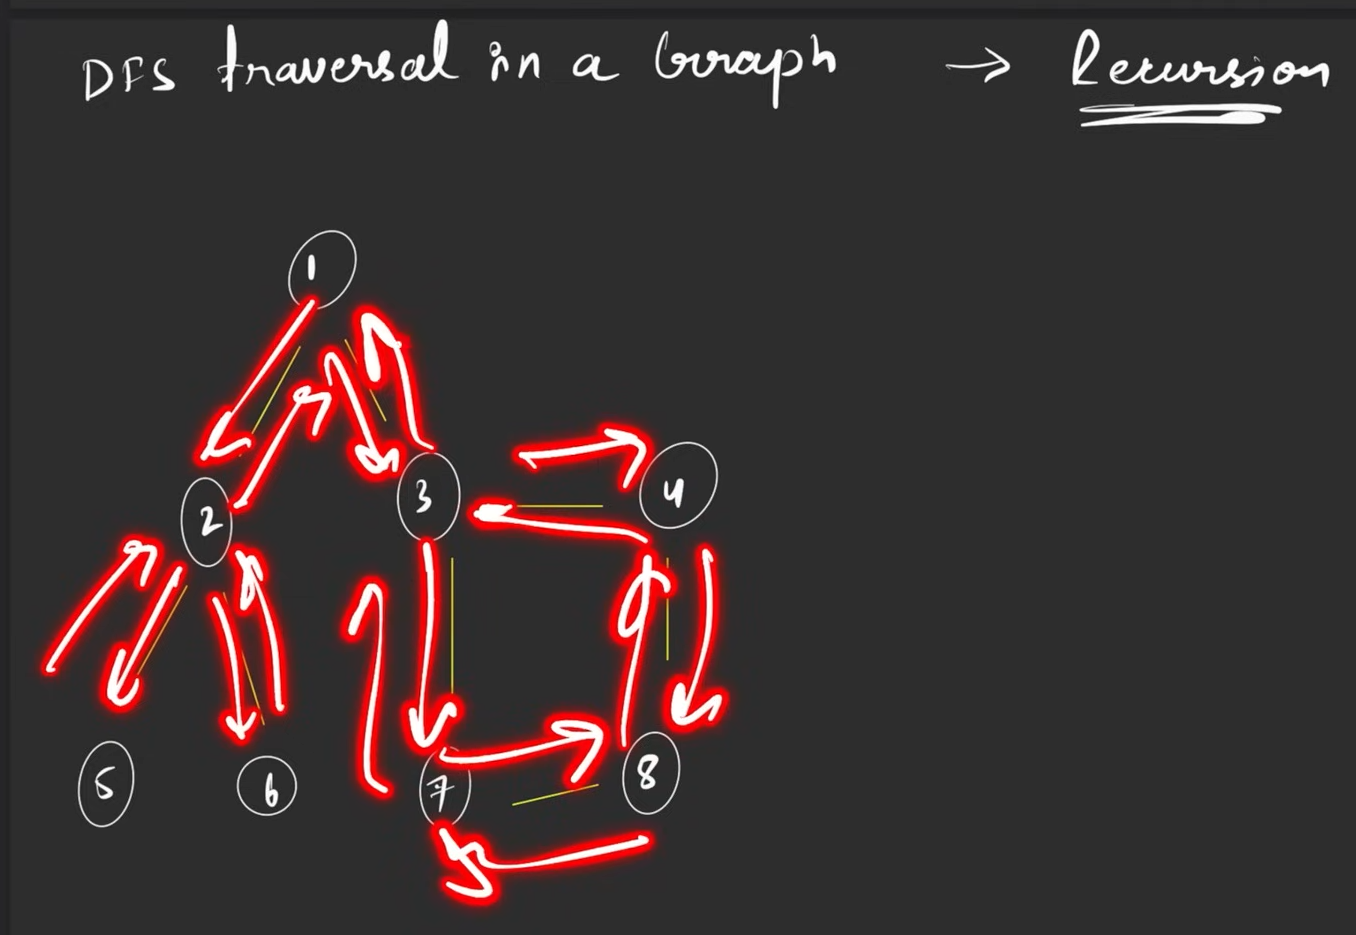 DFS traversal in a Graph → Recursion
1
2 3 4
5 6 7 8